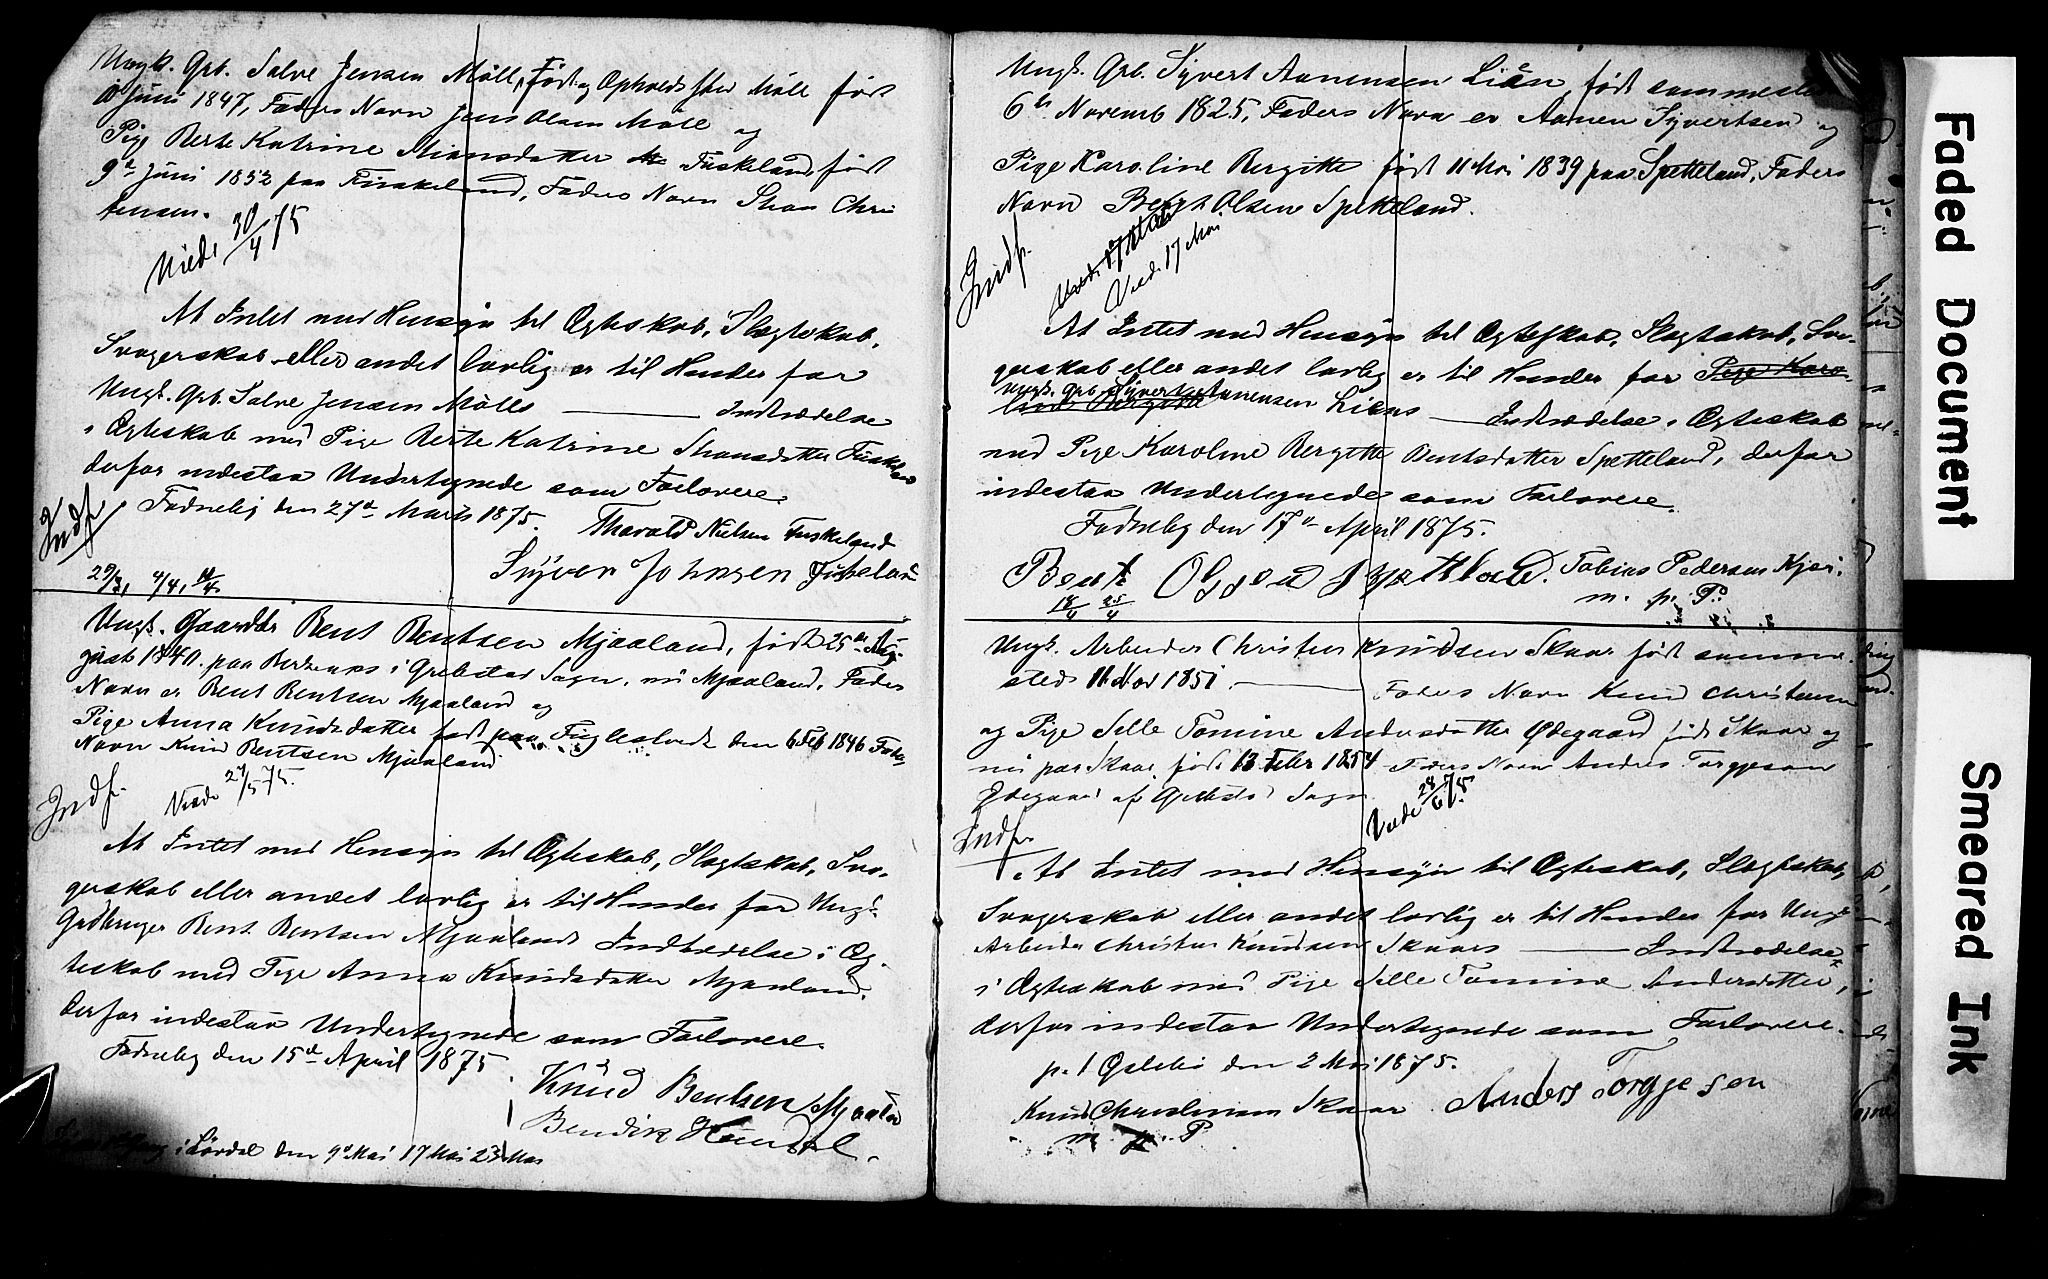 Ungk. Grb. Salve Jensen Möll, Födt og Opholdssted Möll födt
10 Juni 1847, Faders Navn Jens Olsen Möll og
Pige Berte Katrine Stiansdatter Fuskeland födt
9de Juni 1852 paa Fuskeland, Faders Navn Stian Chri
stensen.
Viede 30/4 75
At Intet med Hensyn til Ægteskab, Slægtskab,
Svogerskab eller andet lovlig er til Hinder for
Ungk. Grb. Salve Jensen Mölls Indtrædelse
i Ægteskab med Pige Berte Katrine Stiansdatter Fuskeland
derfor indestaa Undertegnede som Forlovere.
Indf.
Fodneby den 27de Marts 1875.
Thorvald Nielsen Fuskeland
Syvert Johnsen Fuskeland
29/3, 4/4, 11/4
Ungk. Gaardbr Bent Bentsen Mjaaland, födt 25de Au-
gust 1840 paa i Grebstad Sogn, nu Mjaaland. Faders
Navn er Bent Bentsen Mjaaland og
Pige Anna Knudsdatter födt paa Fuglestvedt den 6 Feb 1846 Faders
Navn Knud Bentsen Mjaaland
Indf.
Viede 27/5 75.
At Intet med Hensyn til Ægteskab, Slægtskab, Svo-
gerskab eller andet lovlig er til Hinder for Ungk.
Grdbruger Bent Bentsen Mjaalands Indtrædelse i Æg-
teskab med Pige Anna Knudsdatter Mjaaland,
derfor indestaa Undertegnede som Forlovere.
Fodneby den 15de April 1875
Knud Bentsen Mjaaland
Bendik
i Lördal den 9de Mai 17 Mai 23 Mai
Ungk. Grb. Syvert Aanensen Lien, födt sammested
6te Novemb 1825, Faders Navn er Aanen Syvertsen og
Pige Karoline Bergitte födt 11 Mai 1839 paa Spetteland, Faders
Navn Bent Olsen Spetteland.
Indf.
Viede 17 Mai
Viede 17 Mai
At Intet med Hensyn til Ægteskab, Slægtskab, Svo-
gerskab eller andet lovlig er til Hinder for Pige Karo-
line Bergitte
Ungk. Grb. Syvert Aanensen Liens Indtrædelse i Ægteskab
med Pige Karoline Bergitte Bentsdatter Spetteland, derfor
indestaa Undertegnede som Forlovere.
Fodneby den 17de April 1875.
Bent Olsen Spetteland. Tobias Pedersen Kjær.
m. p. P.
18/4 25/4
Ungk. Arbeider Christen Knudsen Skaar födt samme-
sted 11 Nov 1851. Faders Navn Knud Christensen
og Pige Sille Tomine Andersdatter Ødegaard födt Skaar og
nu paa Skaar, födt 13 Febr 1854 Faders Navn Anders Torgjesen
Ødegaard af Sogn
Viede 28/6 75.
Indf.
At Intet med Hensyn til Ægteskab, Slægtskab,
Svogerskab eller andet lovlig er til Hinder for Ungk
Arbeider Christen Knudsen Skaars Indtrædelse
i Ægteskab med Pige Sille Tomine Andersdatter,
derfor indestaa Undertegnede som Forlovere.
p. t den 2 Mai 1875.
Knud Christensen Skaar Anders Torgjesen
m. p. P
Faded Document
Smeared Ink